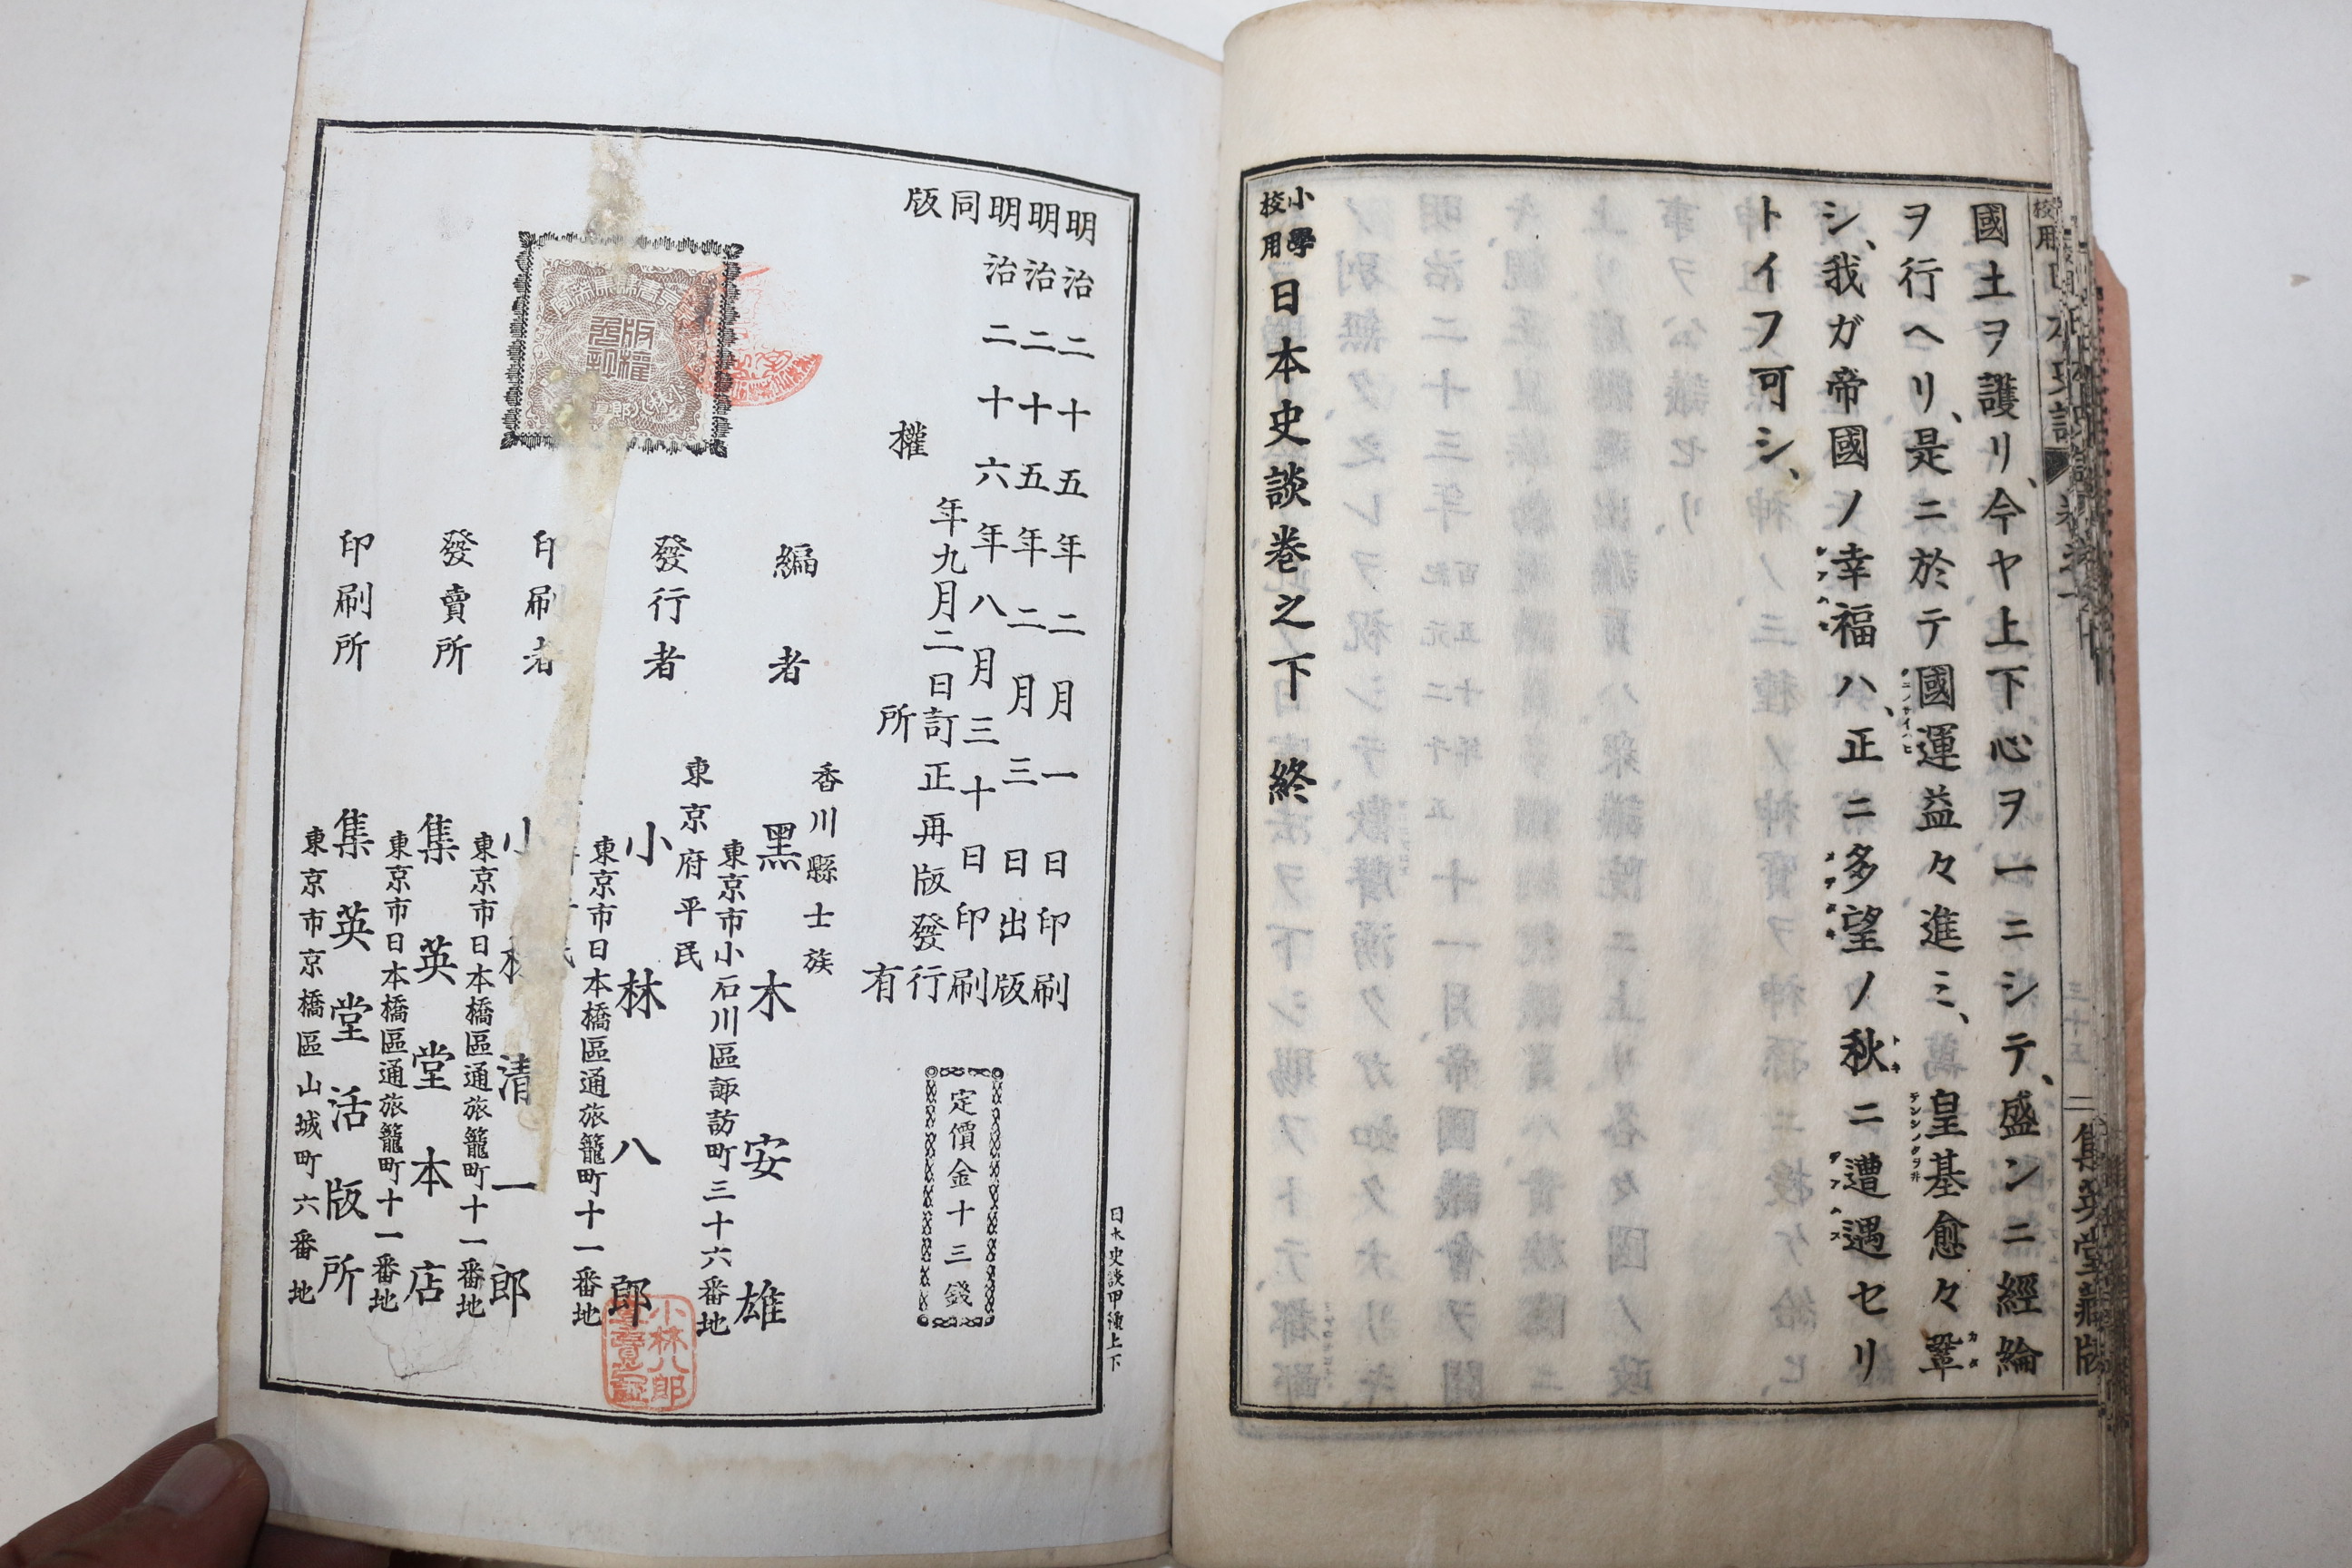 國土ヲ護リ、今ヤ上下心ヲ一ニシテ、盛ンニ經綸
ヲ行ヘリ、是ニ於テ國運益々進ミ、皇基愈々鞏
シ、我ガ帝國ノ幸福ハ、正ニ多望ノ秋ニ遭遇セリ
トイフ可シ、
小學校用日本史談卷之下 終
集英堂藏版
日本史談甲種上下
明治二十五年二月一日印刷
明治二十五年二月三日出版
明治二十六年八月三十日印刷
同年九月二日訂正再版發行
版權所有
定價金十三錢
香川縣士族
編者 黑木安雄
東京市小石川區諏訪町三十六番地
東京府平民
發行者 小林八郎
東京市日本橋區通旅籠町十一番地
印刷者 小林清一郎
東京市日本橋區通旅籠町十一番地
發賣所 集英堂本店
東京市日本橋區通旅籠町十一番地
印刷所 集英堂活版所
東京市京橋區山城町六番地
版權
小林八郎